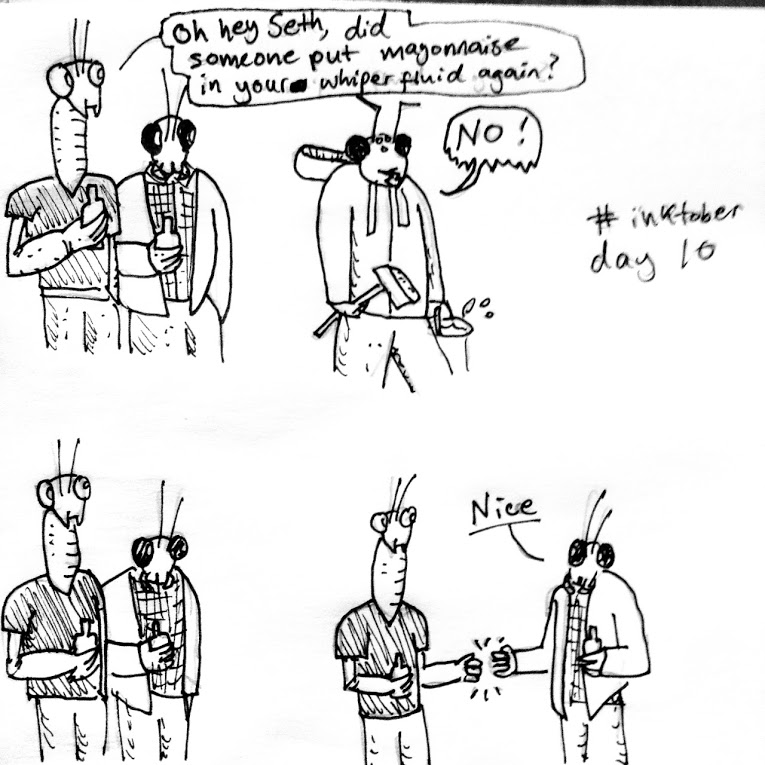 Oh hey Seth, did
someone put mayonnaise
in your whiper fluid again?
NO!
# inktober
day 10
Nice